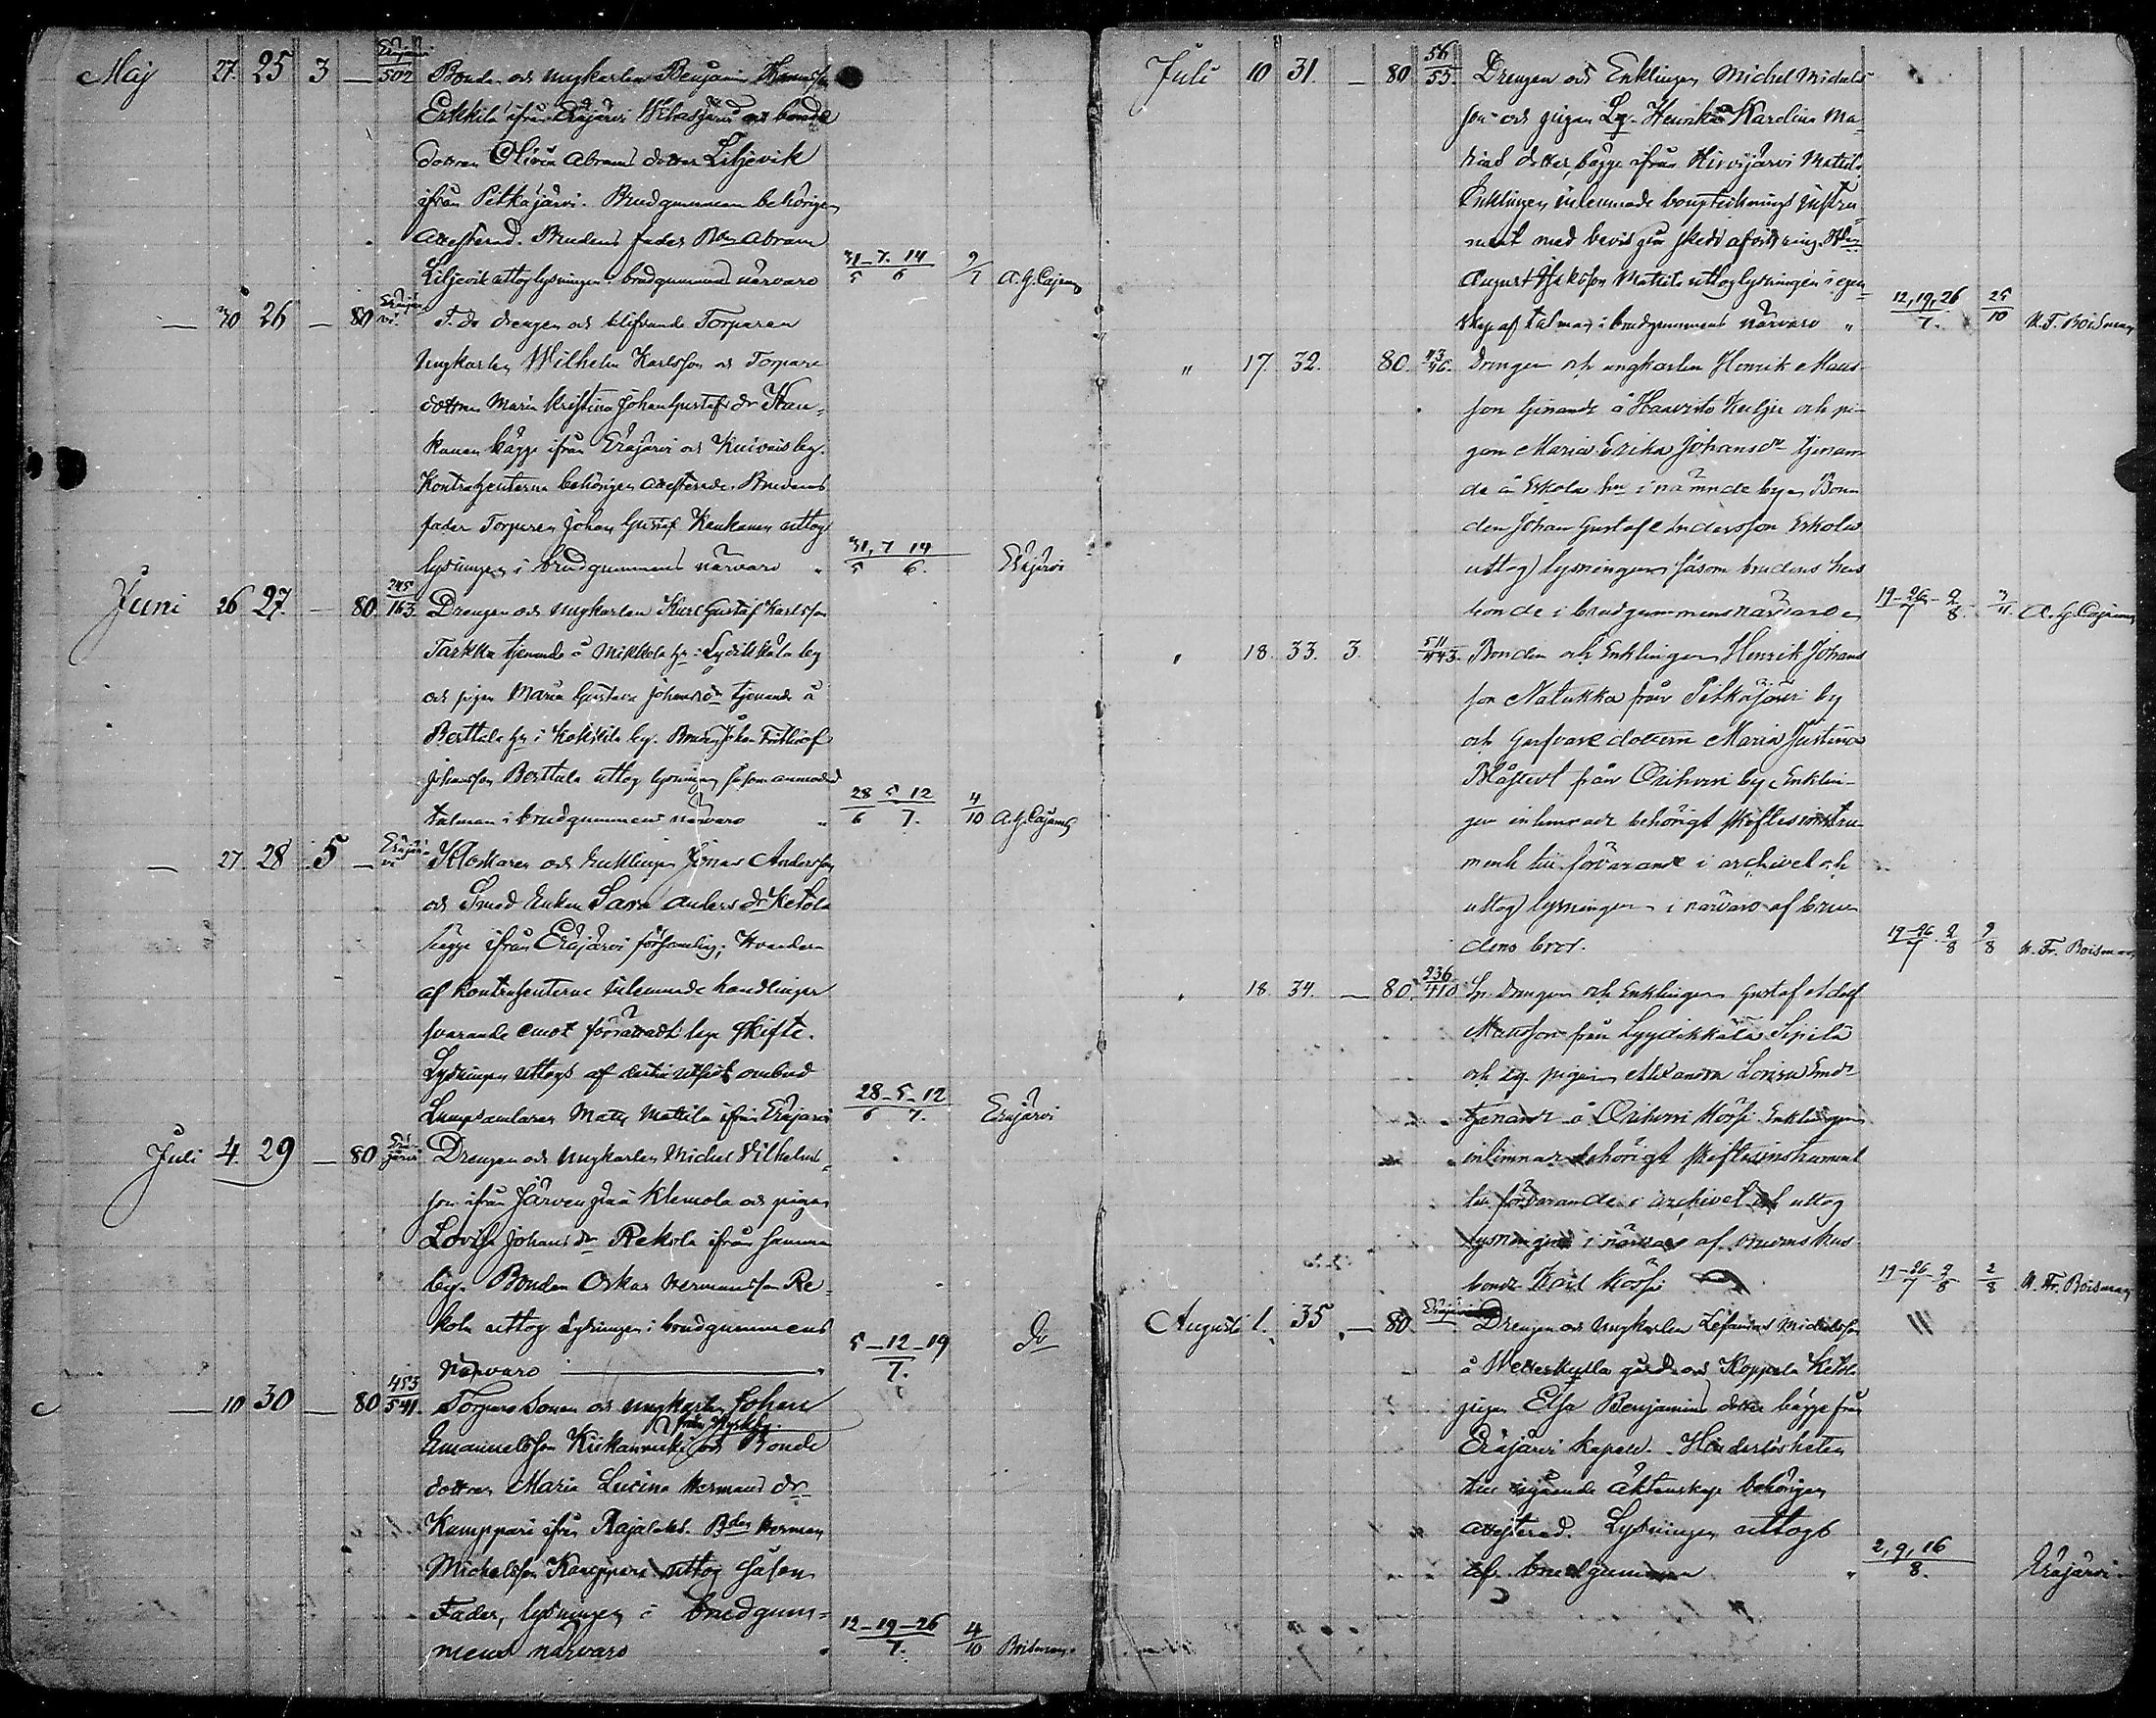 Maj 27. 25 3 — Eräjärvi 502 Bonden och ungkarlen Benjamin
Erkkilä ifrån Eräjärvi Wihasjärvi och bonde
dottren Olivia Abrams dotter Liljevik
ifrån Pitkäjärvi. Brudgummen behörigen
attesterad. Brudens fader Bden Abram
Liljevik uttog lysningen i brudgummens närvaro 31-7.14 5 6 9/7 A.G. Cajanus
— 30 26 — 80 Eräjärvi F.d. drengen och blifvande Torparen
Ungkarlen Wilhelm Karlsson och Torpare
dottren Maria Kristina Johan Gustafs dr Kau-
kanen bägge ifrån Eräjärvi och Kuivais by.
Kontrahenterne behörigen attesterade. Brudens
fader Torparen Johan Gustaf Kaukanen uttog
lysningen i brudgummens närvaro „ 31,7 14 5 6. Eräjärvi
Juni 26 27. — 80. 245 163. Drengen och ungkarlen Karl Gustaf Karlsson
Tarkka tjenande å Mikkola hn i Lyytikkälä by
och pigan Maria Gustava Johans dr tjenande å
Berttula hn i Kokkila by. Bonden Johan Fridolf
Johansson Berttula uttog lysningen såsom anmodad
talman i brudgummens närvaro „ 28 5 12 6 7. 4/10 A.G. Cajanus
— 27. 28 5 — Eräjärvi Klockaren och Enklingen Jonas Andersson
och Smed Enkan Sara Anders dr Ketola
bägge ifrån Eräjärvi församling; Hvardera
af kontrahenterne inlemnade handlingar
svarande emot förrättadt laga skifte.
Lysningen uttogs af
Matts Mattila ifrån Eräjärvi 28-5-12 6 7. Eräjärvi
Juli 4. 29 — 80 Eräjärvi Drengen och Ungkarlen Michel Vilhelms-
son ifrån Järvenpää Klemola och pigan
Lovisa Johans dr Rekola ifrån samma
by. Bonden Oskar Hermansson Re-
kola uttog Lysningen i brudgummens
närvaro — „ 5-12-19 7. do
— 10 30 — 80 453 541. Torpare Sonen och ungkarlen Johan
från
Emanuelsson Kiikanmäki och Bonde
dottren Maria Lucina Hermans dr
Kamppari ifrån Rajalaks. Bden Herman
Michelsson Kamppari uttog såsom
Fader, lysningen i brudgum-
mens närvaro „ 12-19-26 7. 4/10 Boisman.
Juli 10 31. — 80 56 55. Drengen och Enklingen Michel Michels
son och pigan Lq. Henrika Karolina Ma-
thias dotter, bägge ifrån Hirvijärvi Mattila.
Enklingen inlemnade bouptecknings instru-
ment med bevis på skedd afvittring. Bden
August Jakosson Mattila uttog lysningen i egen-
skap af talman i brudgummens närvaro „ 12,19,26 7. 25/10 K.F. Boisman
„ 17. 32. 80. 43 46. Drengen och ungkarlen Henrik Mats
son tjenande å Haavisto Keiljo och pi-
gan Maria Erika Johansdr tjenan-
de å Eskola hn i nämnde by. Bon-
den Johan Gustaf Andersson Eskola
uttog lysningen såsom brudens hus
bonde i brudgummens närvaro „ 19-26- 2 7 8. 3/11. A.G. Cajanus
„ 18. 33. 3. 511 443. Bonden och Enklingen Henrik Johans
son Natukka från Pitkäjärvi by
och Garfvare dottern Maria Justina
Blåfield från Orihvesi by. Enklin-
gen inlemnade behörigt skiftesinstru-
ment till förvarande i archivet och
uttog lysningen i närvaro af bru-
dens bror. 19-26 2 7 8 9/8 K. Fr. Boisman
„ 18. 34. — 80. 236 410 Sn. drengen och Enklingen Gustaf Adolf
Mattsson från Lyytikkälä Sipilä
och Lq. pigan Alexandra Lovisa Emdr
tjenande å Orihvesi Hörsi. Enklingen
inlemnar behörigt skiftesinstrument
till förvarande i archivet och uttog
lysningen i närvaro af brudens hus
bonde Karl Hörsi 19-26 2 7 8 2/8 K. Fr. Boisman
Augusti 1. 35 — 80 Eräjärvi Drengen och Ungkarlen Zefanias Michelsson
å Wedenkylla gård och Koppala Ketola
pigan Elsa Benjamins dotter bägge från
Eräjärvi kapell. Hinderslösheten
till ingående äktenskap behörigen
attesterad. Lysningen uttogs
af brudgummen „ 2,9,16 8. Eräjärvi